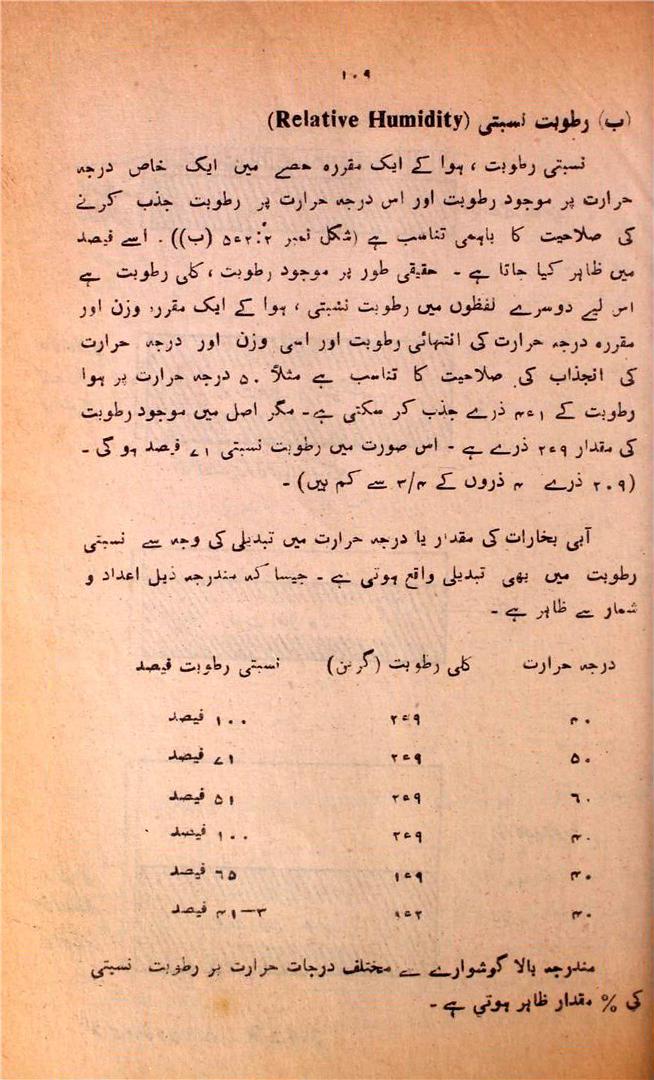 ۱۰۹
(ب) رطوبت نسبتی (Relative Humidity)
نسبتی رطوبت ، ہوا کے ایک مقررہ حصے میں ایک خاص درجہ
حرارت پر موجود رطوبت اور اس درجہ حرارت پر رطوبت جذب کرنے
کی صلاحیت کا باہمی تناسب ہے (شکل نمبر (ب)) ۔ اسے فیصد
میں ظاہر کیا جاتا ہے ۔ حقیقی طور پر موجود رطوبت ، کلی رطوبت ہے
اس لیے دوسرے لفظوں میں رطوبت نشبتی ، ہوا کے ایک مقررہ وزن اور
مقررہ درجہ حرارت کی انتہائی رطوبت اور اسی وزن اور درجہ حرارت
کی انجذاب کی صلاحیت کا تناسب ہے مثلاً ۵۰ درجہ حرارت پر ہوا
رطوبت کے ۴ء۱ ذرے جذب کر سکتی ہے ۔ مگر اصل میں موجود رطوبت
کی مقدار ۲ء۹ ذرے ہے ۔ اس صورت میں رطوبت نسبتی ۷۱ فیصد ہو گی ۔
(۲۰۹ ذرے ۴ ذروں کے ۳/۴ سے کم ہیں) ۔
آبی بخارات کی مقدار یا درجہ حرارت میں تبدیلی کی وجہ سے نسبتی
رطوبت میں بھی تبدیلی واقع ہوتی ہے ۔ جیسا کہ مندرجہ ذیل اعداد و
شمار سے ظاہر ہے ۔
درجہ حرارت کلی رطوبت (گرین) نسبتی رطوبت فیصد
۴۰ ۲ء۹ ۱۰۰ فیصد
۵۰ ۲ء۹ ۷۱ فیصد
۶۰ ۲ء۹ ۵۱ فیصد
۴۰ ۲ء۹ ۱۰۰ فیصد
۴۰ ۱ء۹ ۶۵ فیصد
۴۰ ۴۱–۳ فیصد
مندرجہ بالا گوشوارے سے مختلف درجات حرارت پر رطوبت نسبتی
کی % مقدار ظاہر ہوتی ہے ۔